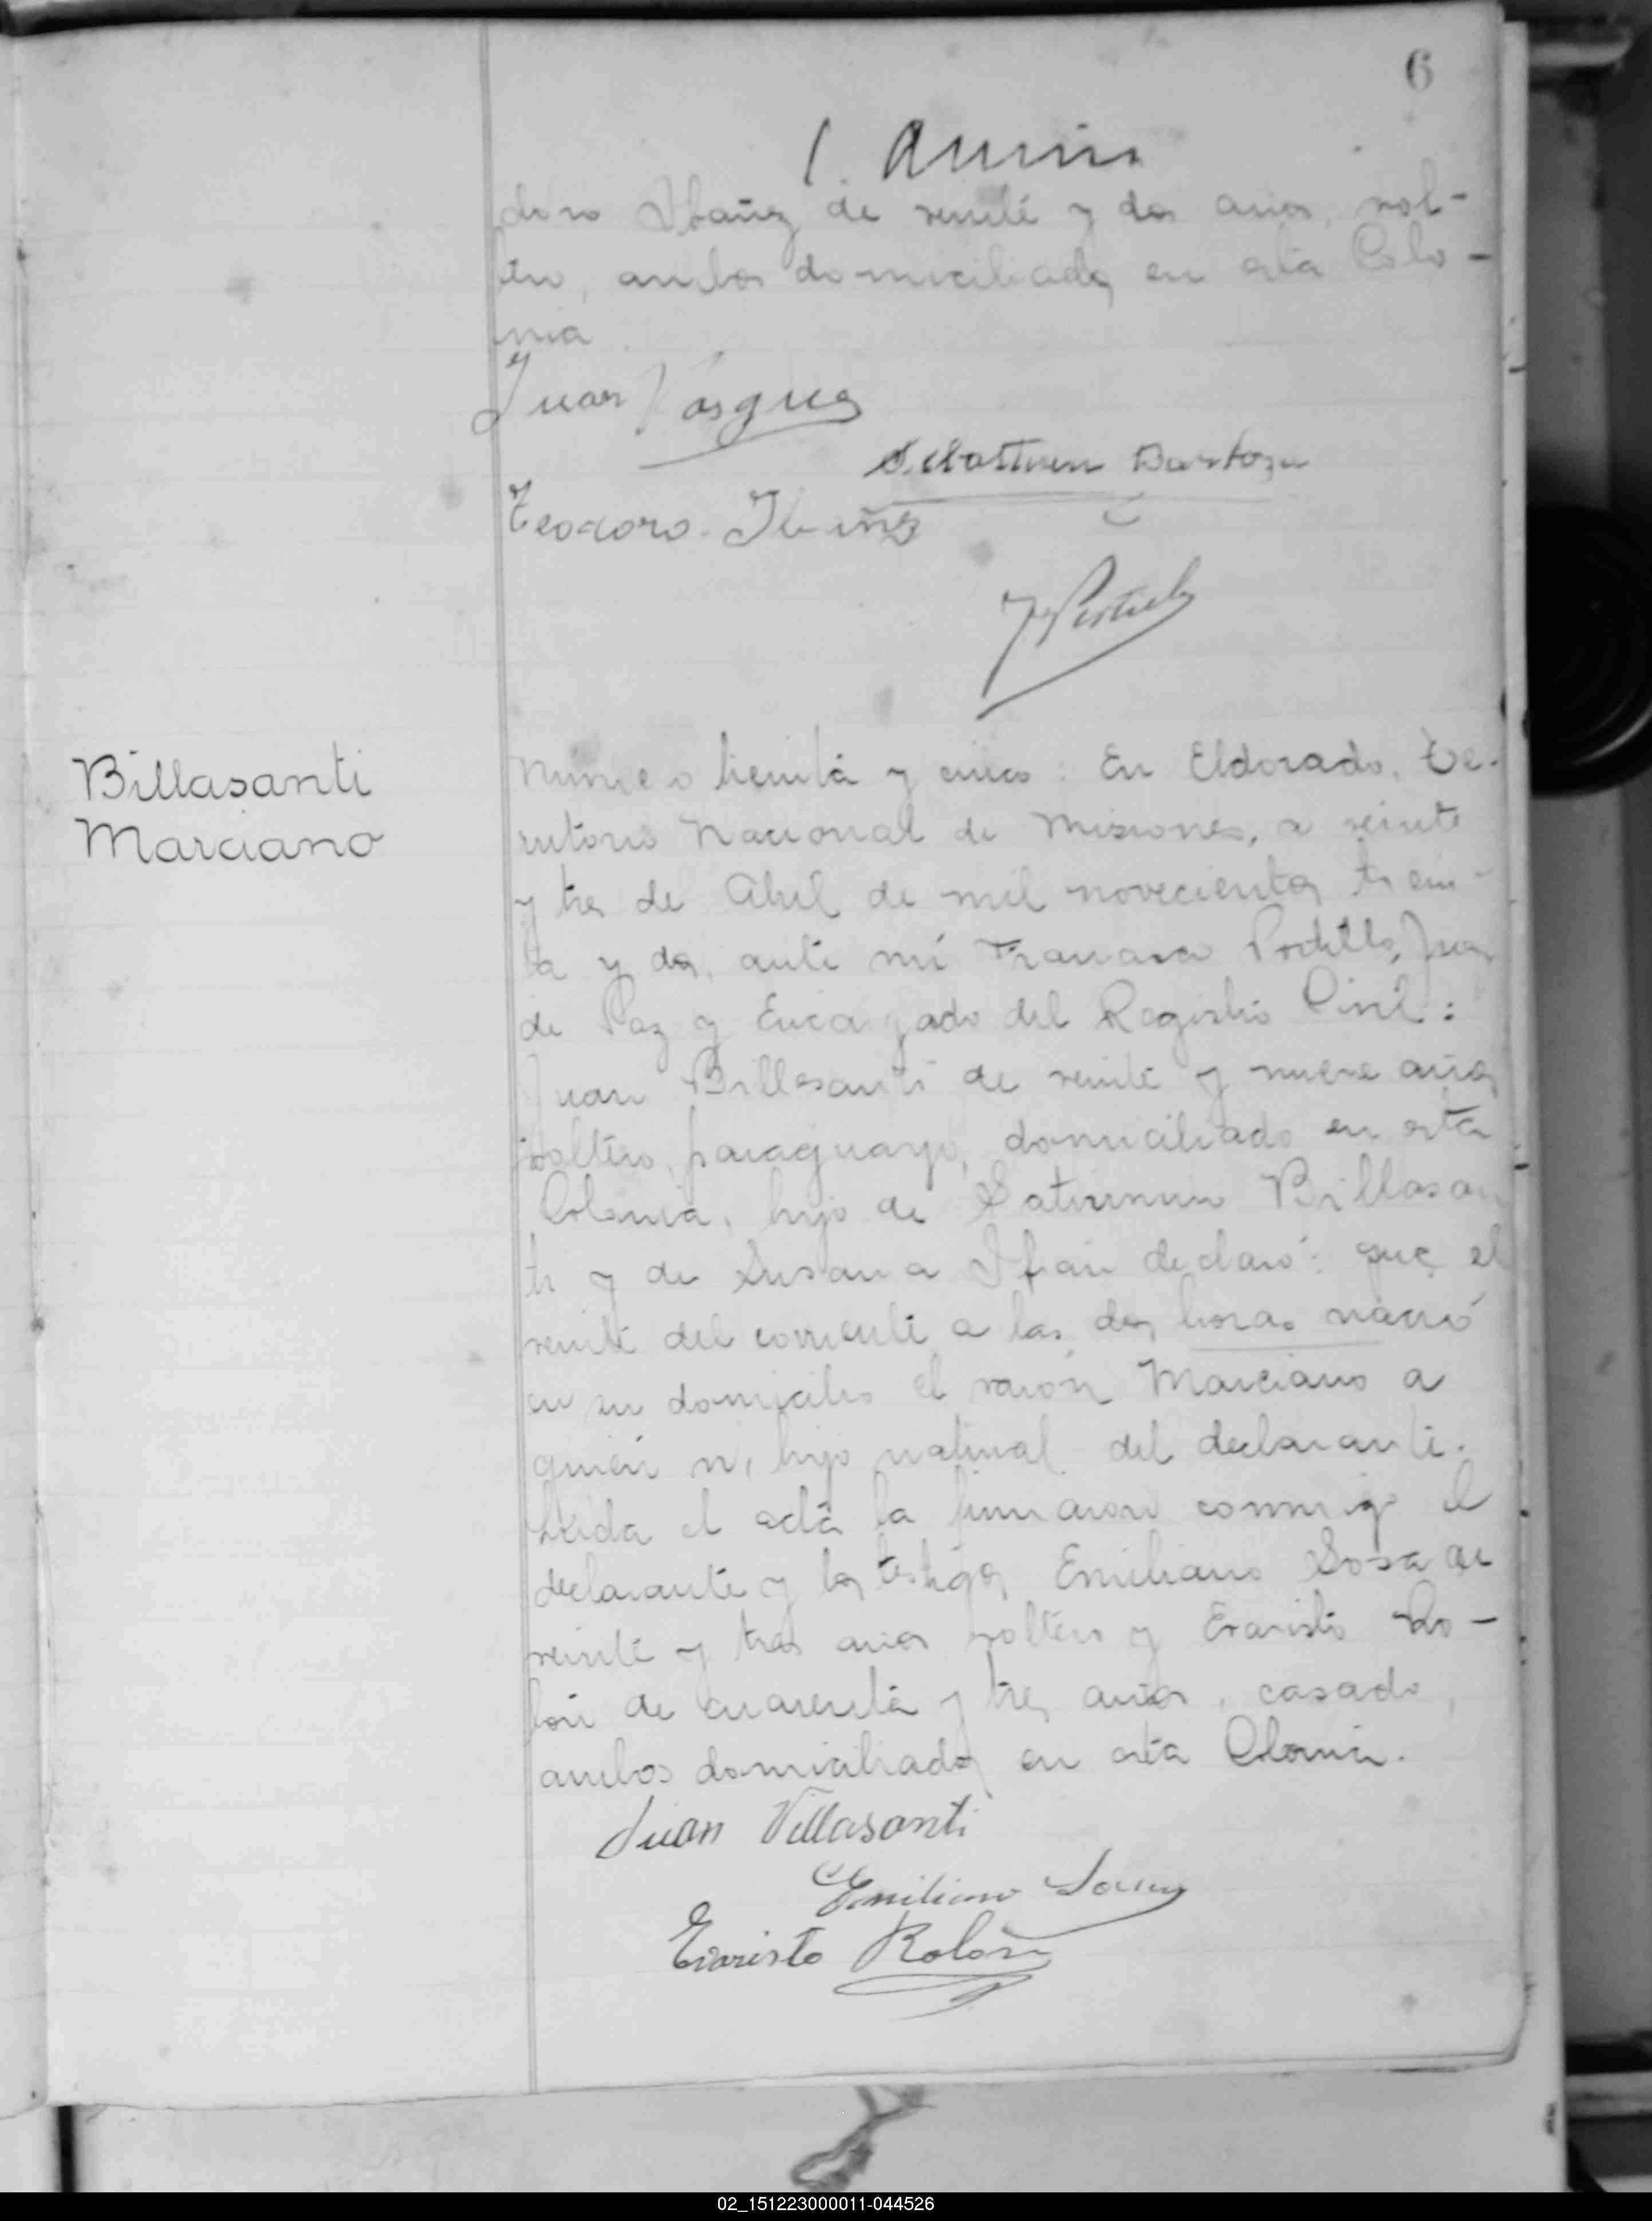 6
doro Ibañez de veinte y dos años, sol-
tero, ambos domiciliados en esta Colo-
nia.
Juan Vásquez
Teodoro Ibañez
Billasanti
Marciano
Numero treinta y cinco: En Eldorado, Te-
rritorio Nacional de Misiones, a veinte
y tres de Abril de mil novecientos trein-
ta y dos, ante mí Francisco Portillo, Juez
de Paz y Encargado del Registro Civil:
Juan Billasanti de veinte y nueve años
soltero, paraguayo, domiciliado en esta
Colonia, hijo de Saturnino Billasan
ti y de Susana Ifran declaró: que el
veinte del corriente a las dos horas nació
en su domicilio el varón Marciano a
quién vi, hijo natural del declarante.
Leida el acta la firmaron conmigo el
declarante y los testigos Emiliano Sosa de
veinte y tres años soltero y Evaristo Ro-
lón de cuarenta y tres años, casado,
ambos domiciliados en esta Colonia.
Juan Villasanti
Emiliano Sosa
Evaristo Rolón
02_151223000011-044526